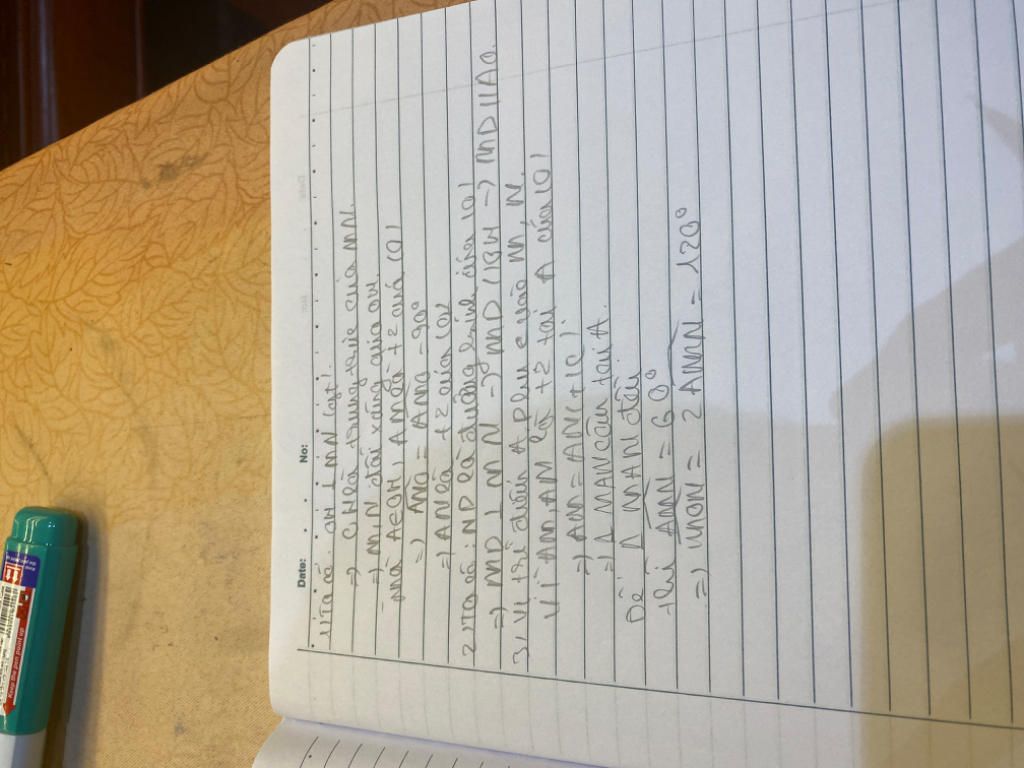 Date: No:
1, Ta có: OH ⊥ MN (gt).
=> OH là trung trực của MN.
=> M, N đối xứng qua OH
mà A ∈ OH, AM là t² của (O)
=> AMO = ANO = 90°
=> AN là t² của (O)
2, Ta có: ND là đường kính của (O)
=> MD ⊥ MN -> MD // BH -> MD // AO.
3, Vị trí điểm A phụ c vào M, N.
Vì AM, AN là t² tại A của (O)
=> AM = AN (t/c).
=> Δ MAN cân tại A.
Để Δ MAN đều
thì AMN = 60°
=> MON = 2 AMN = 120°